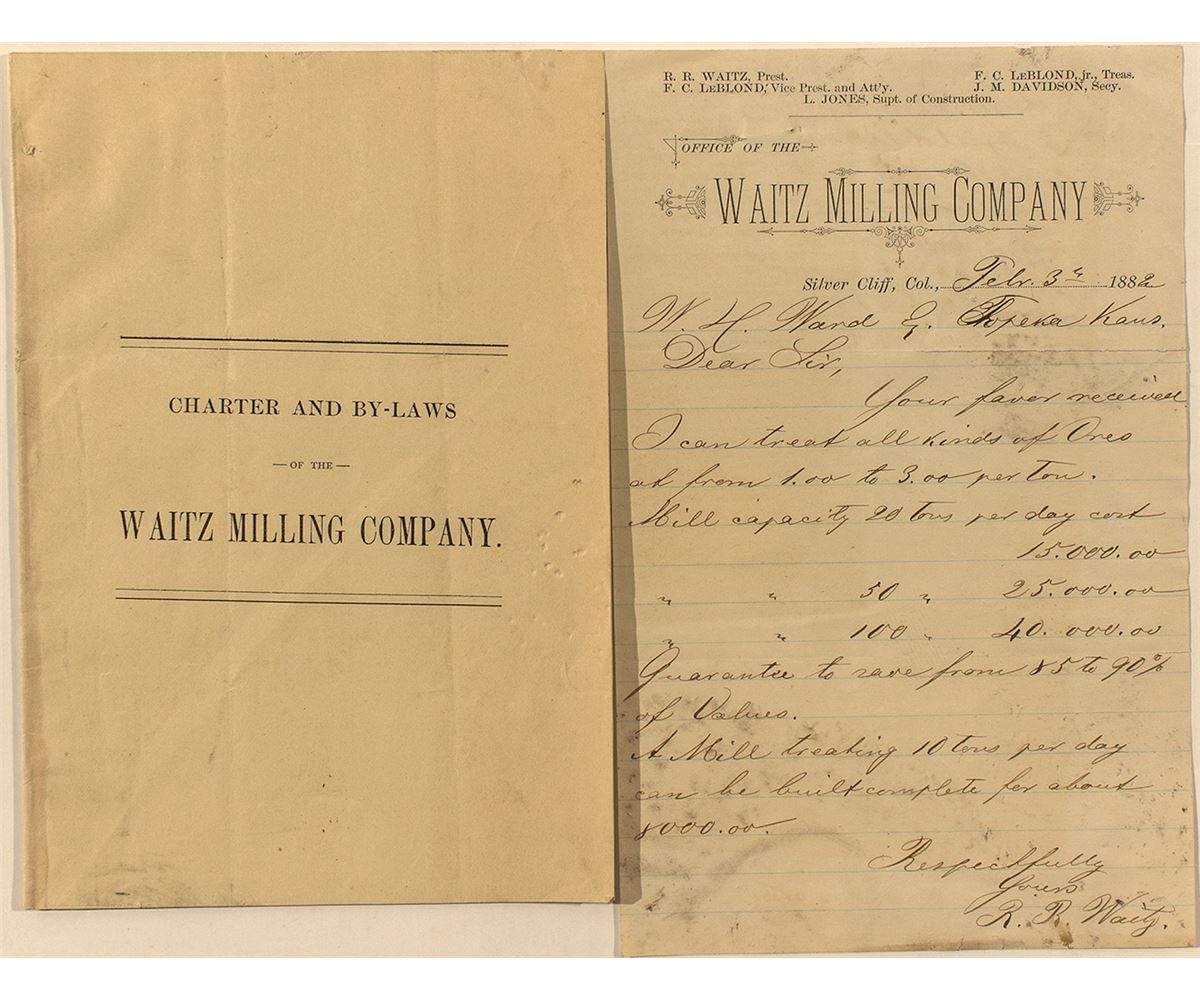 CHARTER AND BY-LAWS
— OF THE —
WAITZ MILLING COMPANY.
R. R. WAITZ, Prest.
F. C. LEBLOND, Vice Prest. and Att'y.
F. C. LEBLOND, jr., Treas.
J. M. DAVIDSON, Secy.
L. JONES, Supt. of Construction.
OFFICE OF THE
WAITZ MILLING COMPANY
Silver Cliff, Col., Febr. 3th 1882
W. H. Ward Topeka Kans.
Dear Sir,
Your favor received
I can treat all kinds of Ores
at from 1.00 to 3.00 per Ton.
Mill capacity 20 tons per day cost
15.000.00
" " 50 " 25.000.00
" " 100 " 40.000.00
Guarantee to save from 85 to 90%
of Values.
A Mill treating 10 tons per day
can be built complete for about
8000.00.
Respectfully
Yours
R. R. Waitz.